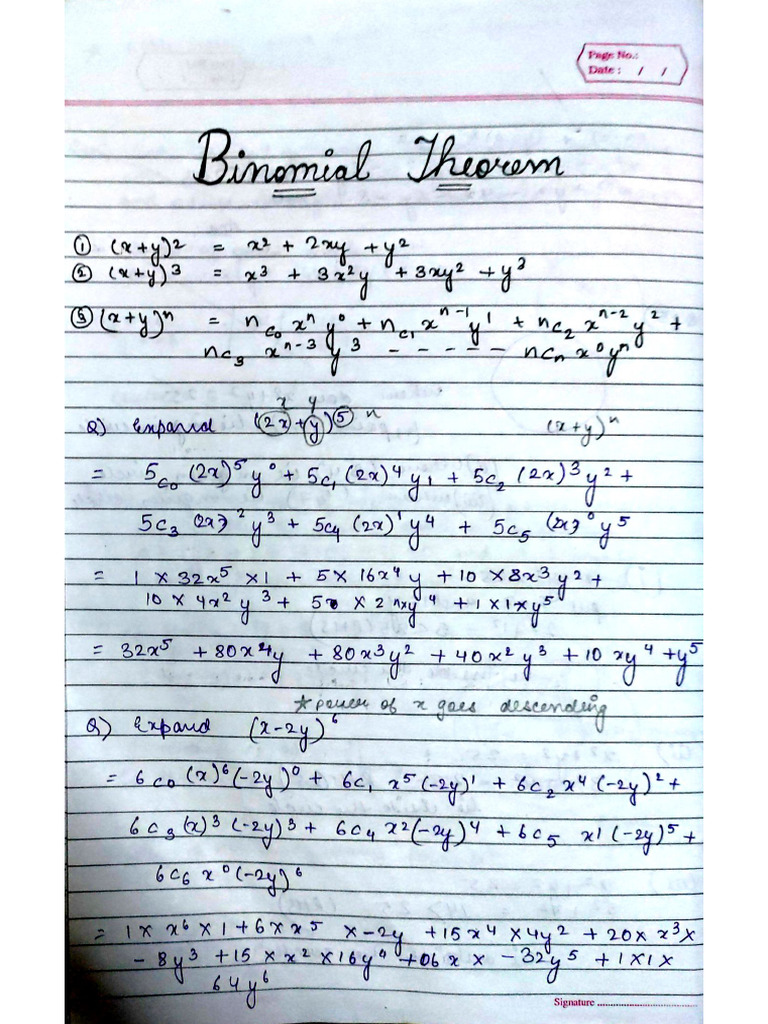 Page No.:
Date : / /
Binomial Theorem
① (x+y)2 = x2 + 2xy + y2
② (x+y)3 = x3 + 3x2y + 3xy2 + y3
③ (x+y)n = nc0 xn y0 + nc1 xn-1 y1 + nc2 xn-2 y2 +
nc3 xn-3 y3 - - - - - ncn x0yn
x y
Q) Expand (2x+y)5 n (x+y)n
= 5c0 (2x)5 y0 + 5c1 (2x)4 y1 + 5c2 (2x)3 y2 +
5c3 (2x)2 y3 + 5c4 (2x)1 y4 + 5c5 (2x)0 y5
= 1 × 32x5 × 1 + 5 × 16x4 y + 10 × 8x3 y2 +
10 × 4x2 y3 + 5 × 2 × y4 + 1 × 1 × y5
= 32x5 + 80x4y + 80x3y2 + 40x2 y3 + 10 xy4 + y5
☆ power of x goes descending
Q) Expand (x-2y)6
= 6c0 (x)6 (-2y)0 + 6c1 x5 (-2y)1 + 6c2 x4 (-2y)2 +
6c3 (x)3 (-2y)3 + 6c4 x2 (-2y)4 + 6c5 x1 (-2y)5 +
6c6 x0 (-2y)6
= 1 × x6 × 1 + 6 × x5 × -2y + 15x4 × 4y2 + 20 × x3 ×
- 8y3 + 15 × x2 × 16y4 + 06 x × - 32y5 + 1 × 1 ×
64y6
Signature